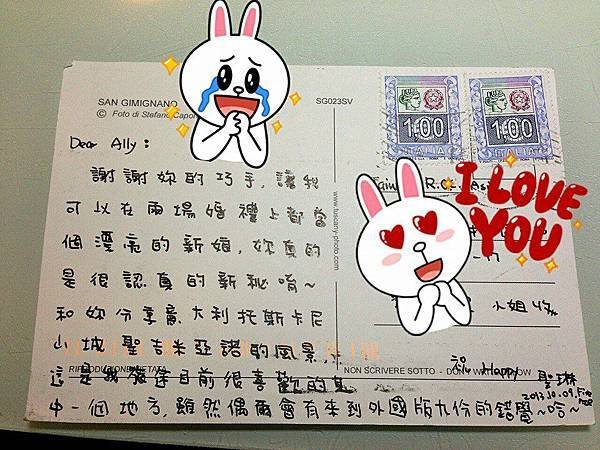 SAN GIMIGNANO
© Foto di Stefano Capor
SG023SV
1,00
ITALIA
1,00
ITALIA
I LOVE
YOU
www.tuscany-photo.com
Dear Ally:
謝謝妳的巧手,讓我
可以在兩場婚禮上都當
個漂亮的新娘,妳真的
是很認真的新秘唷~
和妳分享意大利托斯卡尼
小城聖吉米亞諾的風景,
這是我旅途目前很喜歡的其
中一個地方,雖然偶爾會有來到外國版九份的錯覺~哈~
R.O.C.
小姐 收
祝 Happy
聖琳
2013.10.09
RIPRODUZIONE VIETATA
NON SCRIVERE SOTTO - DON'T WRITE BELOW